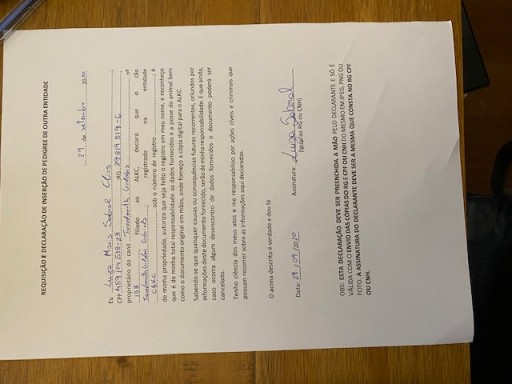 REQUISIÇÃO E DECLARAÇÃO DE INSERÇÃO DE PEDIGREE DE OUTRA ENTIDADE
29 de setembro 2020
Eu Luiza Maria Sobral
CPF RG
proprietário do canil nº
158 filiado ao ALKC, declaro que o cão
registrado na entidade
CBKC sob o número de registro é
de minha propriedade, autorizo que seja feito o registro em meu nome, e reconheço
que é de minha total responsabilidade os dados fornecidos e a posse do animal bem
como o documento original em mãos, onde forneço a cópia digital para o ALKC.
Sabendo-se que quaisquer causas ou consequências futuras recorrentes, oriundos por
informações deste documento fornecido, serão de minha responsabilidade. E que ainda,
caso ocorra algum desencontro de dados fornecidos o documento poderá ser
cancelado.
Tenho ciência dos meus atos e me responsabilizo por ações cíveis e criminais que
possam recorrer sobre as informações aqui declaradas.
O acima descrito é verdade e dou fé
Data: 29/09/2020 Assinatura: Luiza Sobral
(Igual ao RG ou CNH)
OBS: ESTA DECLARAÇÃO DEVE SER PREENCHIDA A MÃO PELO DECLARANTE E SÓ É
VÁLIDA COM O ENVIO DAS CÓPIAS DO RG E CPF OU CNH DO MESMO EM JPEG, PNG OU
FOTO. A ASSINATURA DO DECLARANTE DEVE SER A MESMA QUE CONSTA NO RG CPF
OU CNH.